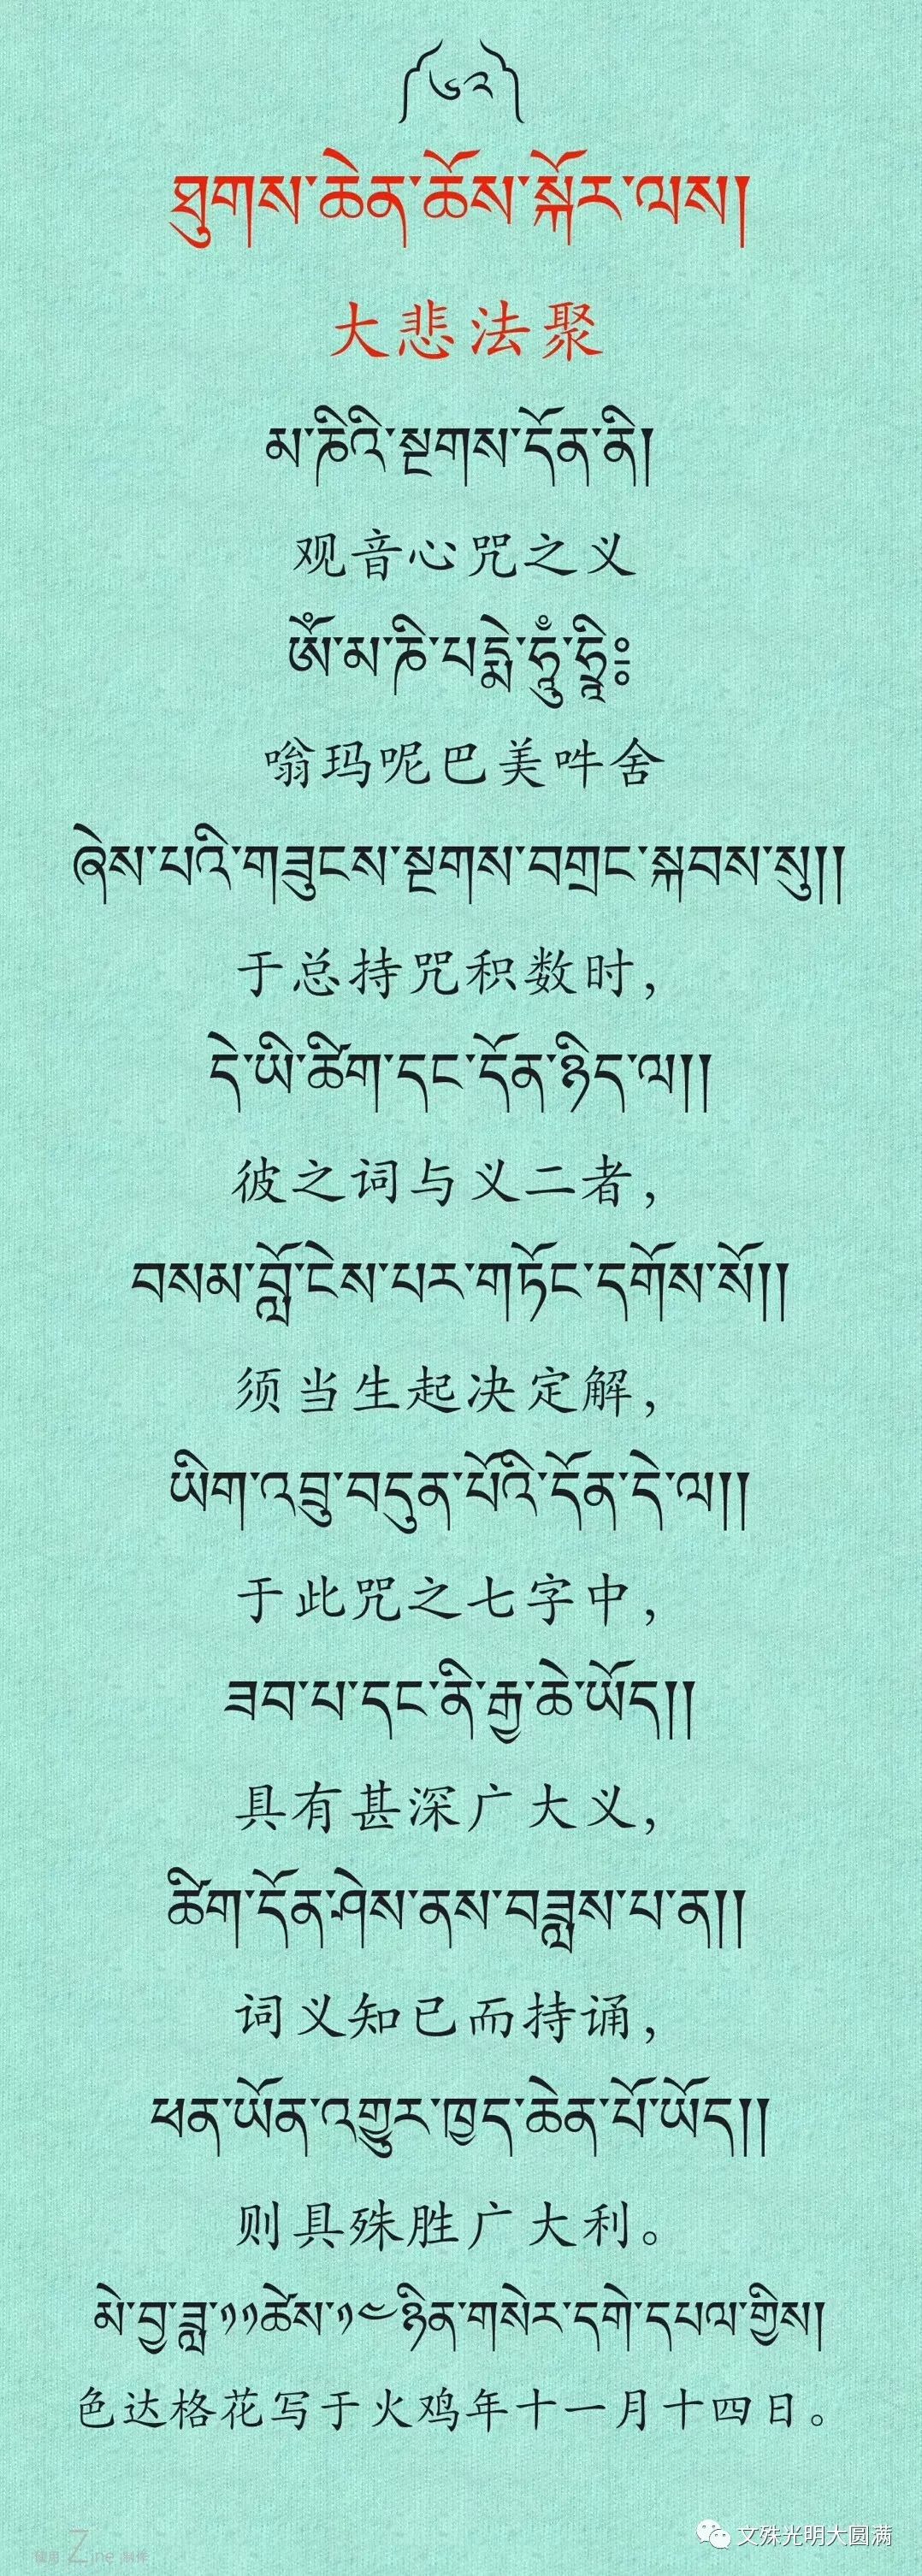 ༼༦༢༽
ཐུགས་ཆེན་ཆོས་སྐོར་ལས།
大悲法聚
མ་ཎིའི་སྔགས་དོན་ནི།
观音心咒之义
ༀ་མ་ཎི་པདྨེ་ཧཱུྃ་ཧྲཱིཿ
嗡玛呢巴美吽舍
ཞེས་པའི་གཟུངས་སྔགས་བགྲང་སྐབས་སུ།།
于总持咒积数时，
དེ་ཡི་ཚིག་དང་དོན་ཉིད་ལ།།
彼之词与义二者，
བསམ་བློ་ངེས་པར་གཏོང་དགོས་སོ།།
须当生起决定解，
ཡིག་འབྲུ་བདུན་པོའི་དོན་དེ་ལ།།
于此咒之七字中，
ཟབ་པ་དང་ནི་རྒྱ་ཆེ་ཡོད།།
具有甚深广大义，
ཚིག་དོན་ཤེས་ནས་བཟླས་པ་ན།།
词义知已而持诵，
ཕན་ཡོན་འགྱུར་ཁྱད་ཆེན་པོ་ཡོད།།
则具殊胜广大利。
མེ་བྱ་ཟླ་༡༡ཚེས་༡༤ཉིན་གསེར་དགེ་དཔལ་གྱིས།
色达格花写于火鸡年十一月十四日。
文殊光明大圆满
使用 Zine 制作